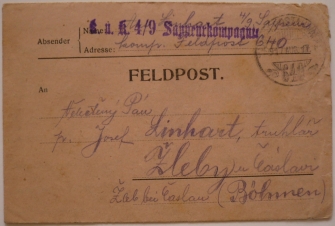 Absender
Name:
K. u. K. 4/9 Sappeurkompagnie
Adresse: komp. Feldpost 640
FELDPOST.
An
Pán
Josef Linhart, truhlář
Žleby u Čáslavi
Žleb bei Časlau (Böhmen)